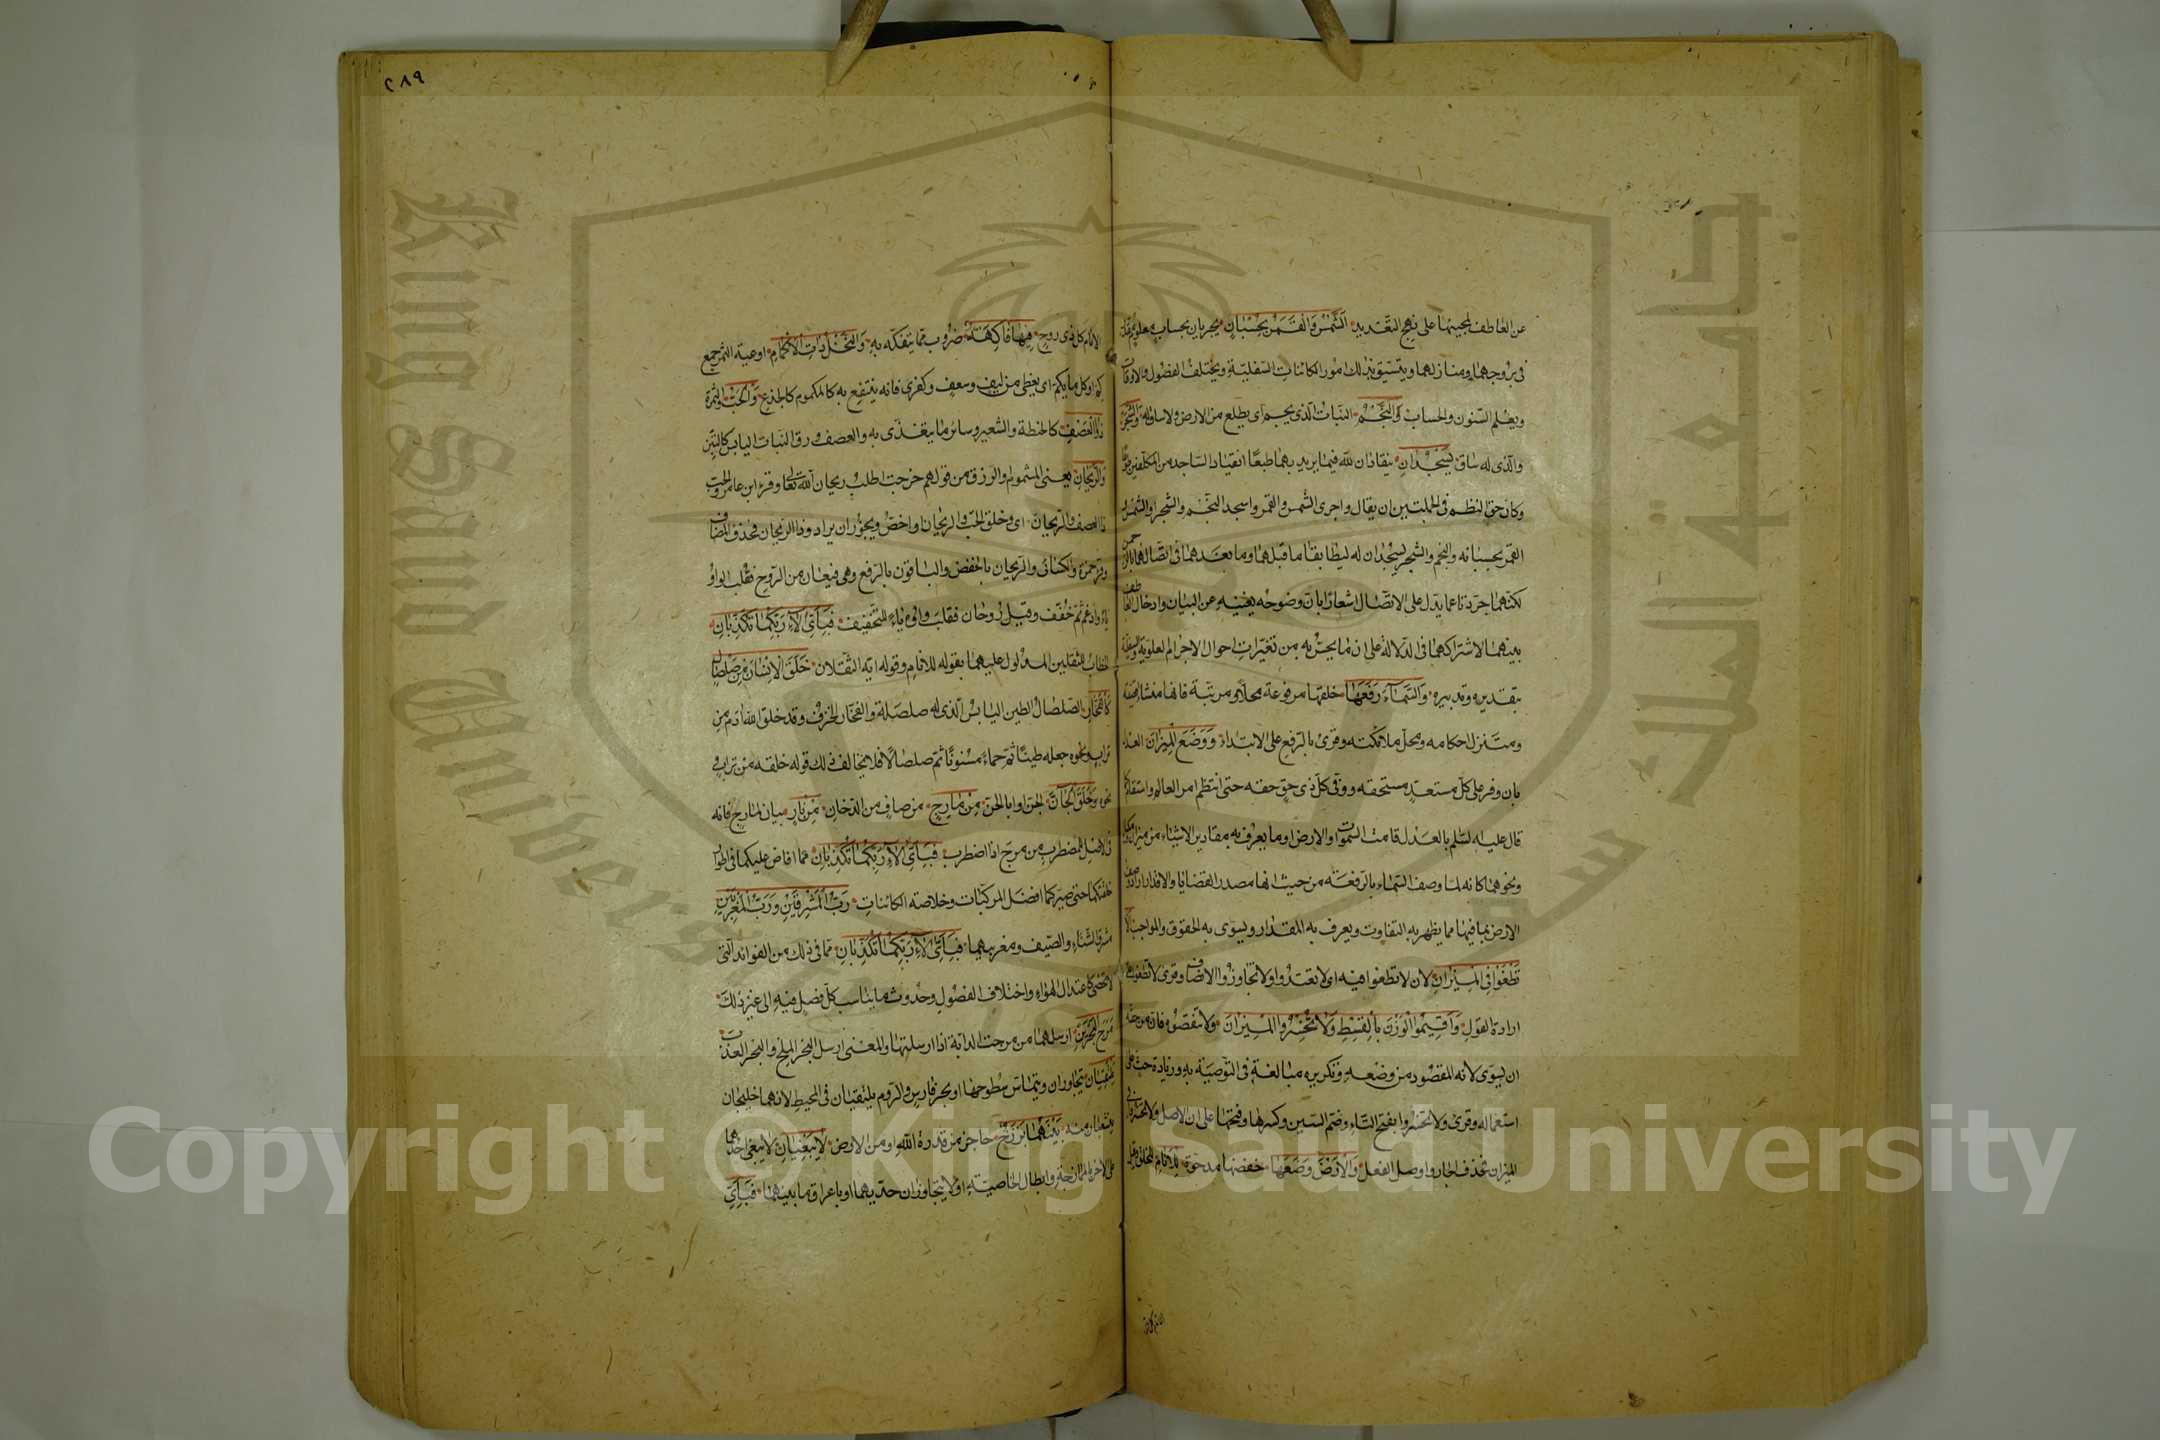 عن العاطف لمجيئها على نهج التعديد الشمس والقمر بحسبان يجريان بحساب معلوم مقدر
فى بروجهما ومنازلهما ويتسق بذلك امور الكائنات السفلية ويختلف الفصول والاوقات
ويعلم السنون والحساب والنجم النبات الذى ينجم اى يطلع من الارض ولا ساق له والشجر
والذى له ساق يسجدان ينقادان لله فيما يريد بهما طبعا انقياد الساجد من المكلفين طوعا
وكان حق النظم فى الجملتين ان يقال واجرى الشمس والقمر واسجد النجم والشجر او الشمس و
القمر بحسبانه والنجم والشجر يسجدان له ليطابقا ما قبلهما وما بعدهما فى اتصالهما بالرحمن
لكنهما جردتا عما يدل على الاتصال اشعارا بان وضوحه يغنيه عن البيان وادخال العاطف
بينهما لاشتراكهما فى الدلالة على ان ما يحس به من تغيرات احوال الاجرام العلوية والسفلية
بتقديره وتدبيره والسماء رفعها خلقها مرفوعة محلا ومرتبة فانها منشأ اقضيته
ومتنزل احكامه ومحل ملائكته وقرئ بالرفع على الابتداء ووضع الميزان العدل
بان وفر على كل مستعد مستحقه ووفى كل ذى حق حقه حتى انتظم امر العالم واستقام كما
قال عليه السلم بالعدل قامت السموات والارض او ما يعرف به مقادير الاشياء من ميزان ومكيال
ونحوهما كانه لما وصف السماء بالرفعة من حيث انها مصدر القضايا والاقدار اراد وصف
الارض بما فيها مما يظهر به التفاوت ويعرف به المقدار ويسوى به الحقوق والمواجب الا
تطغوا فى الميزان لان لا تطغوا فيه اى لا تعتدوا ولا تجاوزوا الانصاف وقرئ لا تطغوا على
ارادة القول واقيموا الوزن بالقسط ولا تخسروا الميزان ولا تنقصوه فان من حقه
ان يسوى لانه المقصود من وضعه وتكريره مبالغة فى التوصية به وزيادة حث على
استعماله وقرئ ولا تخسروا بفتح التاء وضم السين وكسرها وفتحها على ان الاصل ولا تخسروا فى
الميزان فحذف الجار واوصل الفعل والارض وضعها خفضها مدحوة للانام للخلق وقيل
الانام كل
٢٨٩
الانام كل ذى روح فيها فاكهة ضروب مما يتفكه به والنخل ذات الاكمام اوعية الثمر جمع
كم او كل ما يكم اى يغطى من ليف وسعف وكفرى فانه ينتفع به كالمكموم كالجذع والحب والثمرة
ذو العصف كالحنطة والشعير وسائر ما يتغذى به والعصف ورق النبات اليابس كالتبن
والريحان يعنى المشموم او الرزق من قولهم خرجت اطلب ريحان الله تعالى وقرء ابن عامر والحب
ذا العصف والريحان اى وخلق الحب والريحان او اخص ويجوز ان يراد وذا الريحان فحذف المضاف
وقرء حمزة والكسائى والريحان بالخفض والباقون بالرفع وهى فيعلان من الروح فقلب الواو
ياء وادغم ثم خفف وقيل روحان فقلب واوه ياء للتخفيف فبأى الاء ربكما تكذبان
الخطاب للثقلين المدلول عليهما بقوله للانام وقوله ايه الثقلان خلق الانسان من صلصال
كالفخار الصلصال الطين اليابس الذى له صلصلة والفخار الخزف وقد خلق الله ادم من
تراب ونحوه جعله طينا ثم حماء مسنونا ثم صلصالا فلا يخالف ذلك قوله خلقه من تراب و
نحوه وخلق الجان الجن او ابا الجن من مارج من صاف من الدخان من نار بيان لمارج فانه
فى الاصل للمضطرب من مرج اذا اضطرب فبأى الاء ربكما تكذبان مما افاض عليكما فى اطوار
خلقتكما حتى صيركما افضل المركبات وخلاصة الكائنات رب المشرقين ورب المغربين
مشرق الشتاء والصيف ومغربيهما فبأى الاء ربكما تكذبان مما فى ذلك من الفوائد التى
لا تحصى كاعتدال الهواء واختلاف الفصول وحدوث ما يناسب كل فصل فيه الى غير ذلك
مرج البحرين ارسلهما من مرجت الدابة اذا ارسلتها والمعنى ارسل البحر الملح والبحر العذب
يلتقيان يتجاوران ويتماس سطوحهما او بحر فارس والروم يلتقيان فى المحيط لانهما خليجان
يتشعبان منه بينهما برزخ حاجز من قدرة الله او من الارض لا يبغيان لا يبغى احدهما
على الاخر بالممازجة وابطال الخاصية او لا يتجاوزان حديهما او باغراق ما بينهما فبأى
King Saud University
جامعة الملك سعود
Copyright © King Saud University